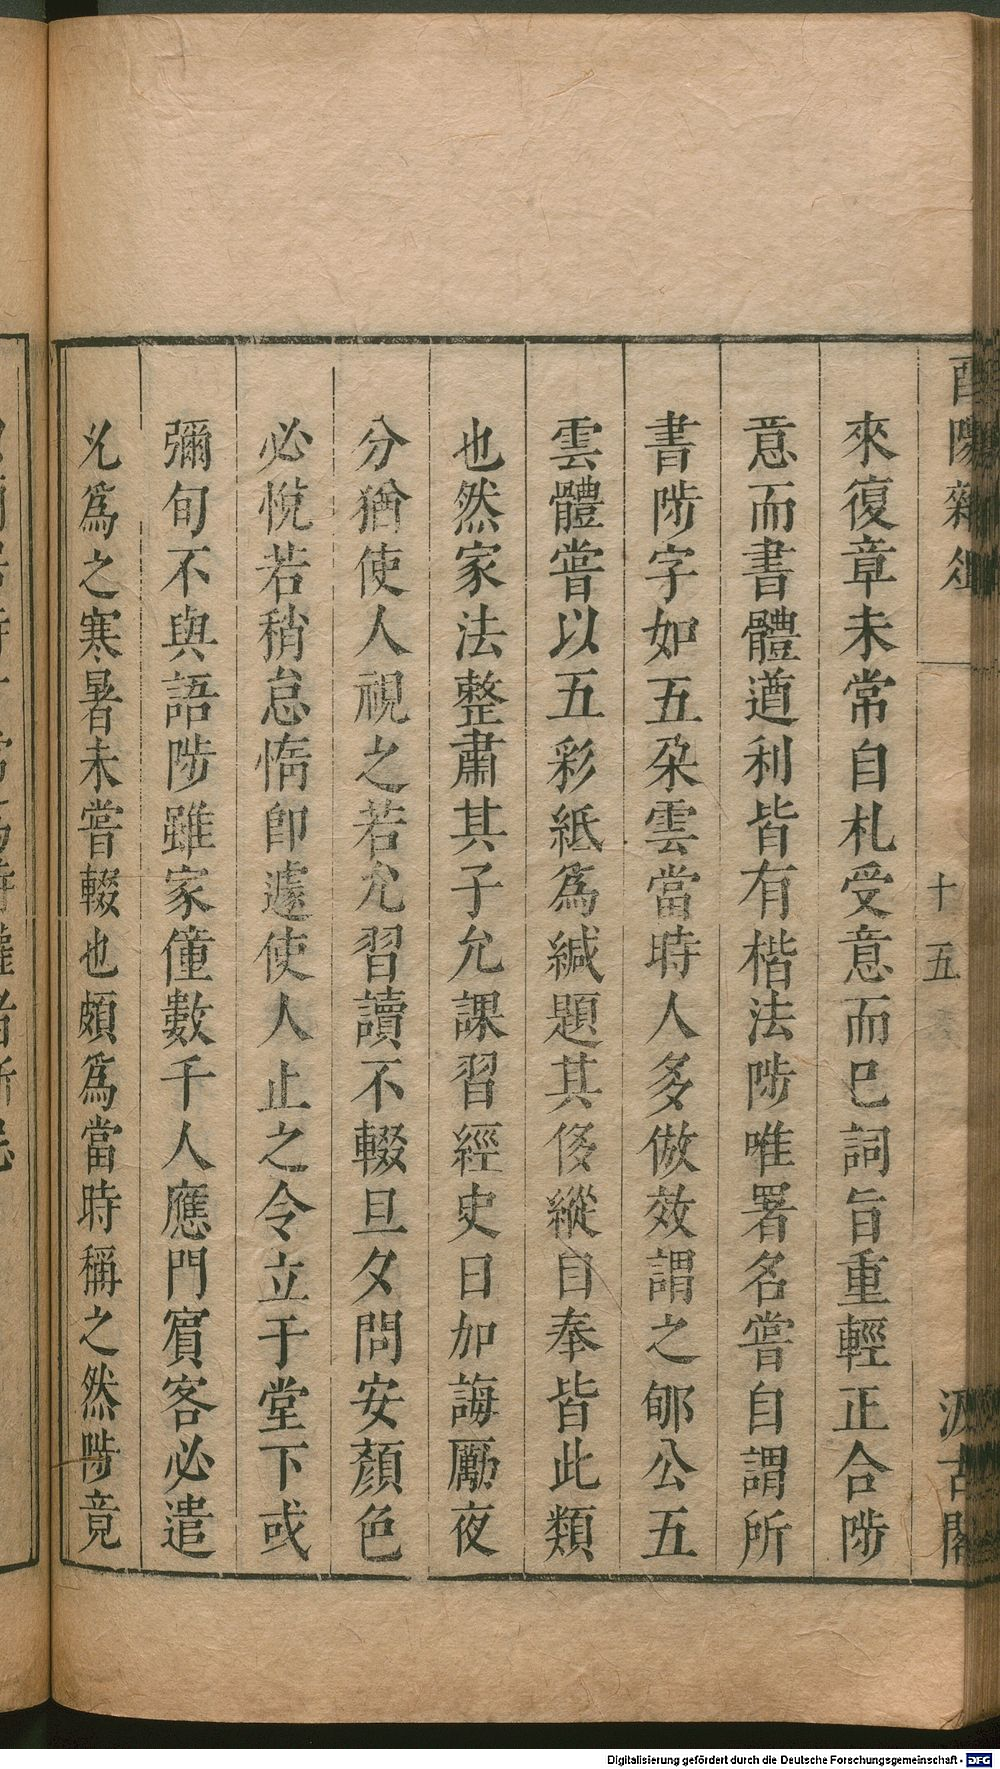 酉陽雜俎
十五
汲古閣
來復章未常自札受意而已詞旨重輕正合陟
意而書體遒利皆有楷法陟唯署名嘗自謂所
書陟字如五朶雲當時人多倣效謂之郇公五
雲體嘗以五彩紙爲緘題其侈縱自奉皆此類
也然家法整肅其子允課習經史日加誨勵夜
分猶使人視之若允習讀不輟旦夕問安顏色
必悅若稍怠惰卽遽使人止之令立于堂下或
彌旬不與語陟雖家僮數千人應門賔客必遣
允爲之寒暑未嘗輟也頗爲當時稱之然陟竟
Digitalisierung gefördert durch die Deutsche Forschungsgemeinschaft - DFG